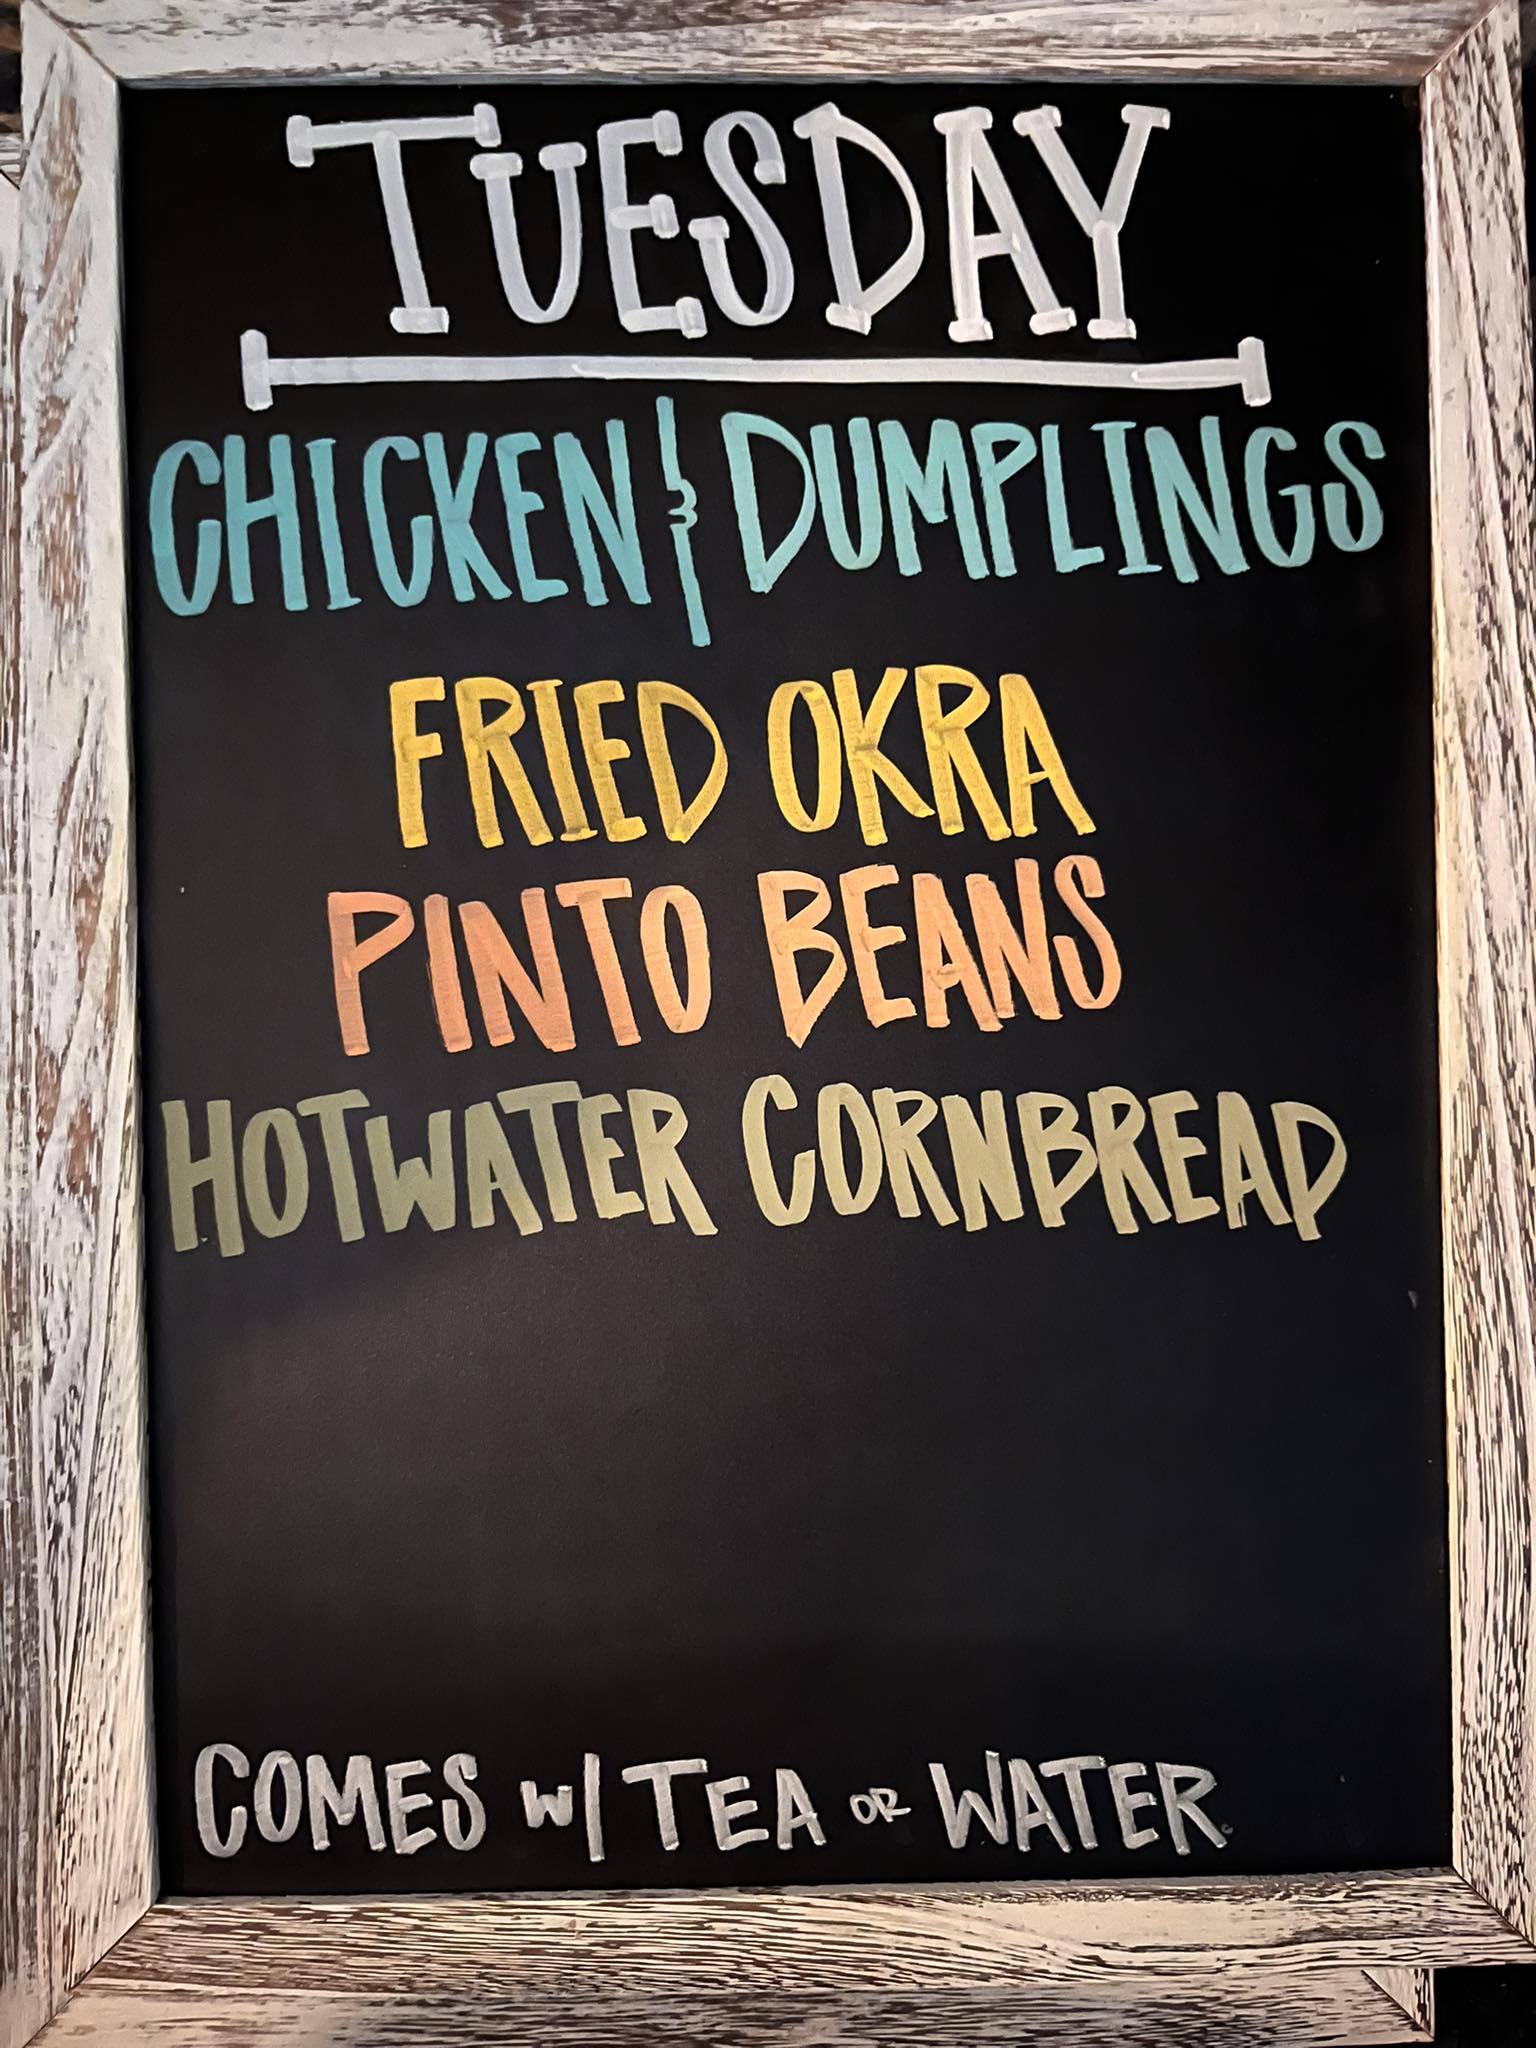 TUESDAY
CHICKEN & DUMPLINGS
FRIED OKRA
PINTO BEANS
HOTWATER CORNBREAD
COMES W/ TEA OR WATER